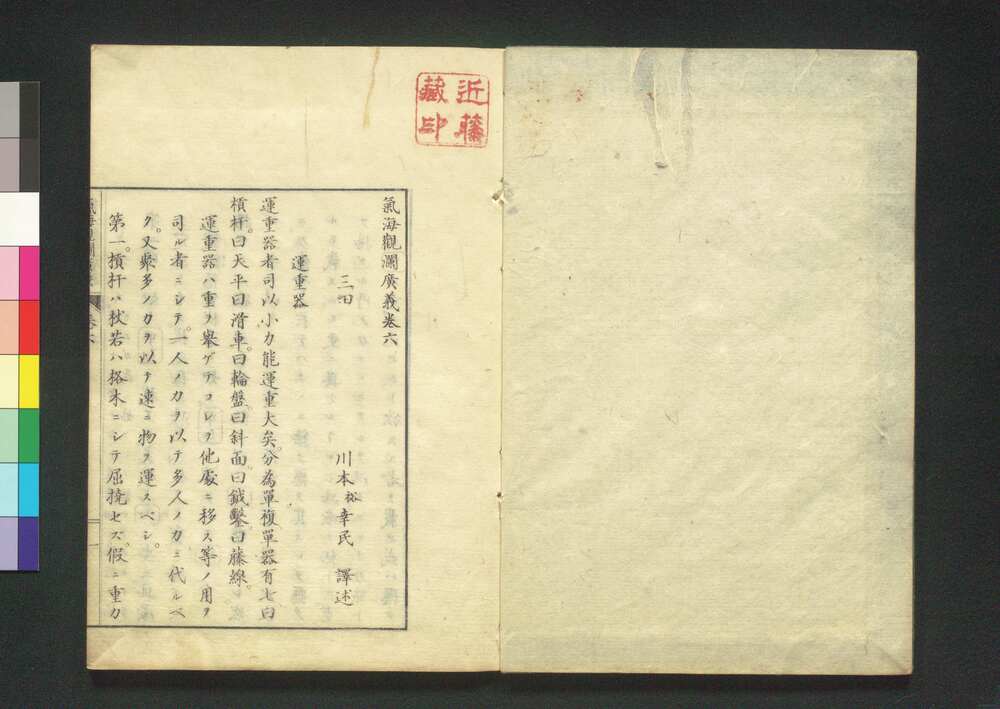 近藤
藏印
氣海觀瀾廣義卷六
三田 川本裕幸民 譯述
運重器
運重器者司以小力能運重大矣。分為單複單器有七曰
槓杆。曰天平曰滑車。曰輪盤曰斜面曰鉞鑿。曰藤線。
運重器ハ重ヲ舉ゲテコレヲ他處ニ移ス等ノ用ヲ
司ル者ニシテ。一人ノカヲ以テ多人ノカニ代ルベ
ク。又衆多ノカヲ以テ速ニ物ヲ運スベシ。
第一。槓扞ハ杖若ハ挌木ニシテ屈撓セズ。假ニ重力